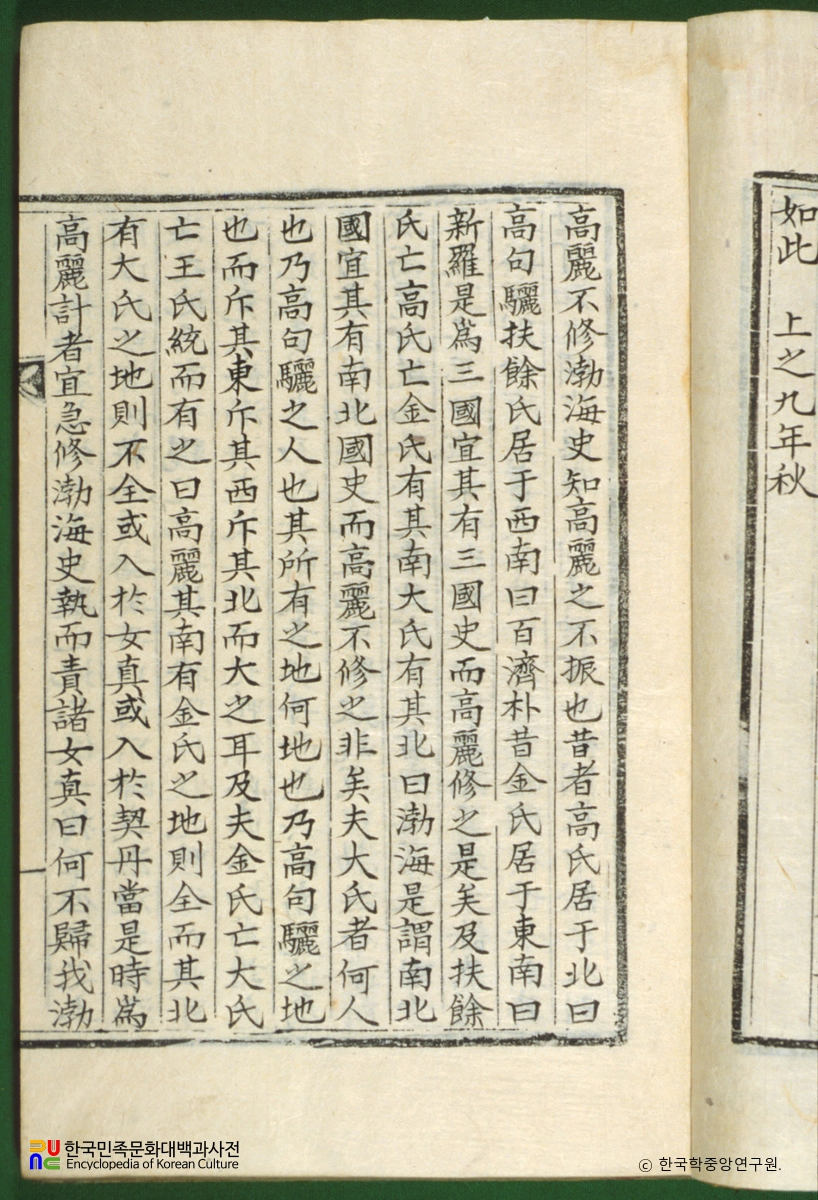 如此 上之九年秋
高麗不修渤海史知高麗之不振也昔者高氏居于北曰
高句驪扶餘氏居于西南曰百濟朴昔金氏居于東南曰
新羅是爲三國宜其有三國史而高麗修之是矣及扶餘
氏亡高氏亡金氏有其南大氏有其北曰渤海是謂南北
國宜其有南北國史而高麗不修之非矣夫大氏者何人
也乃高句驪之人也其所有之地何地也乃高句驪之地
也而斥其東斥其西斥其北而大之耳及夫金氏亡大氏
亡王氏統而有之曰高麗其南有金氏之地則全而其北
有大氏之地則不全或入於女真或入於契丹當是時爲
高麗計者宜急修渤海史執而責諸女真曰何不歸我渤
한국민족문화대백과사전
Encyclopedia of Korean Culture
ⓒ 한국학중앙연구원.